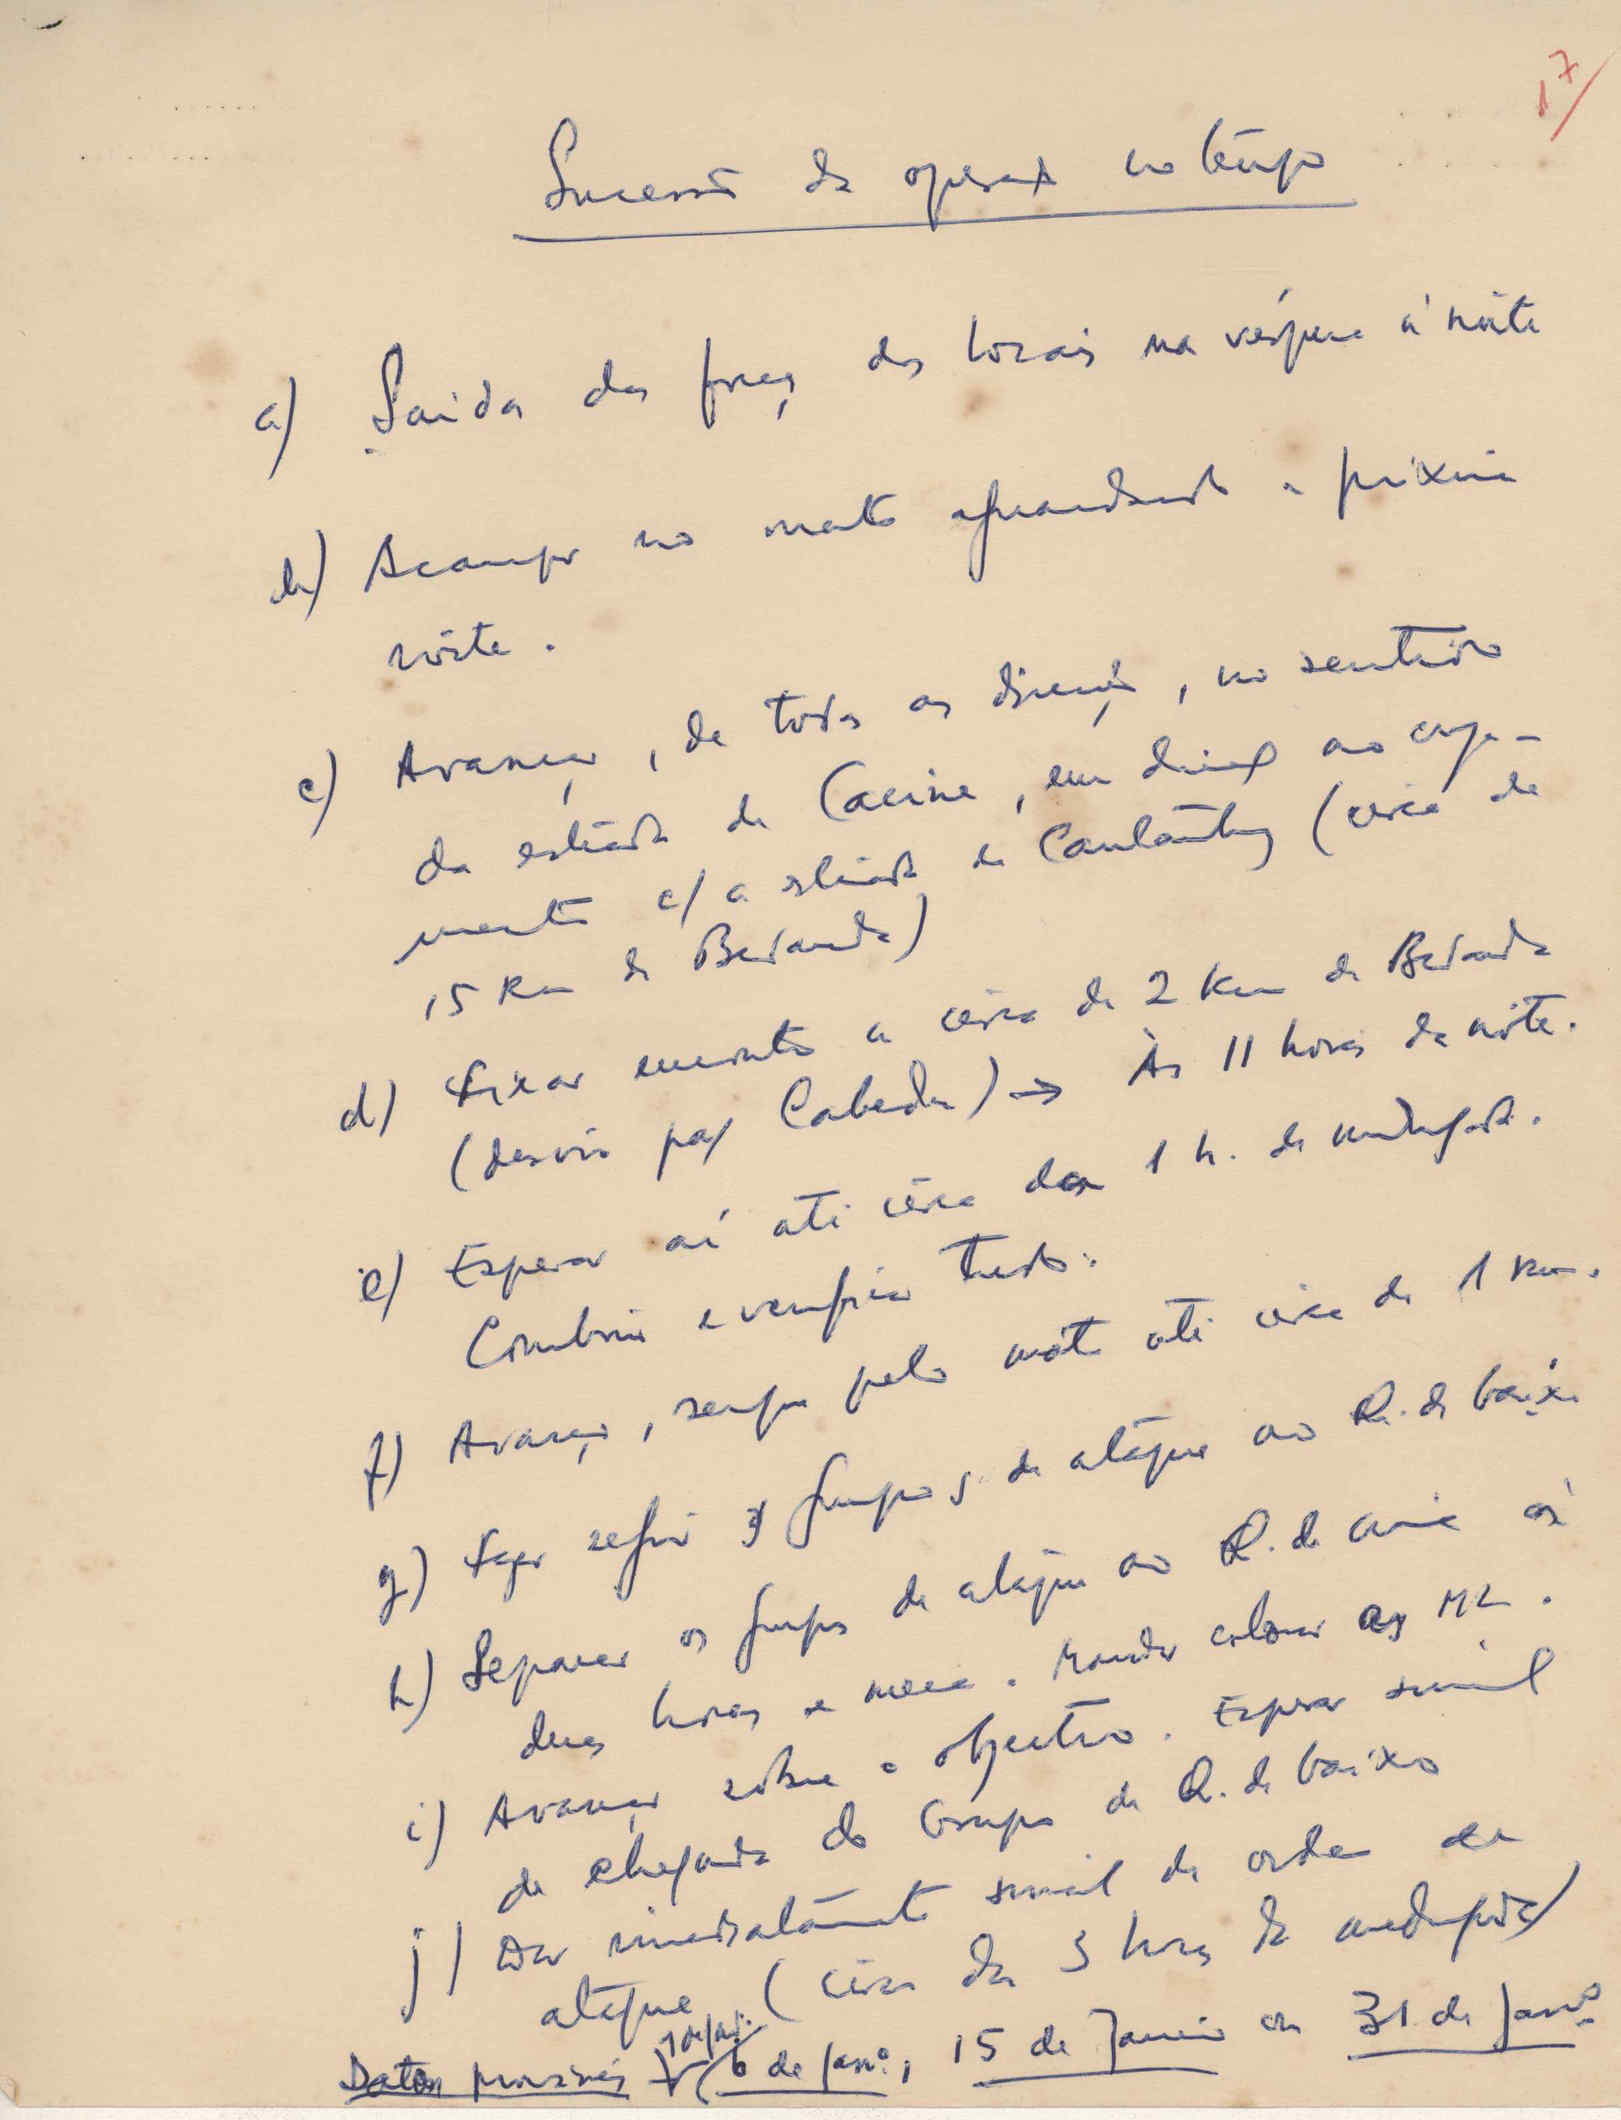 17
Sucessão da operação no tempo
a) Saida das forças dos locais na véspera à noite
b) Acampar no mato aguardando a próxima
noite.
c) Avançar, de todas as direcções, no sentido
da estrada de Cacine, em direcção ao cruza-
mento c/ a estrada de (cerca de
15 Km de Bedanda)
d) Fixar cerca de 2 Km de Bedanda
(desvio para Cabedu) → Às 11 horas da noite.
e) Esperar aí até cêrca das 1 h. da madrugada.
Combinar e verificar tudo.
f) Avançar, sempre pelo mato até cerca de 1 Km.
g) Fazer seguir 3 grupos de ataque ao Q. de baixo
h) Separar os grupos de ataque ao Q. de cima às
duas horas e meia. Mandar colocar as ML.
i) Avançar sôbre o objectivo. Esperar sinal
de chegada do Grupo de Q. de baixo
j) Dar imediatamente sinal de ordem de
ataque (cêrca das 3 horas da madrugada)
Datas (6 de Janº, 15 de Janeiro ou 31 de Janº